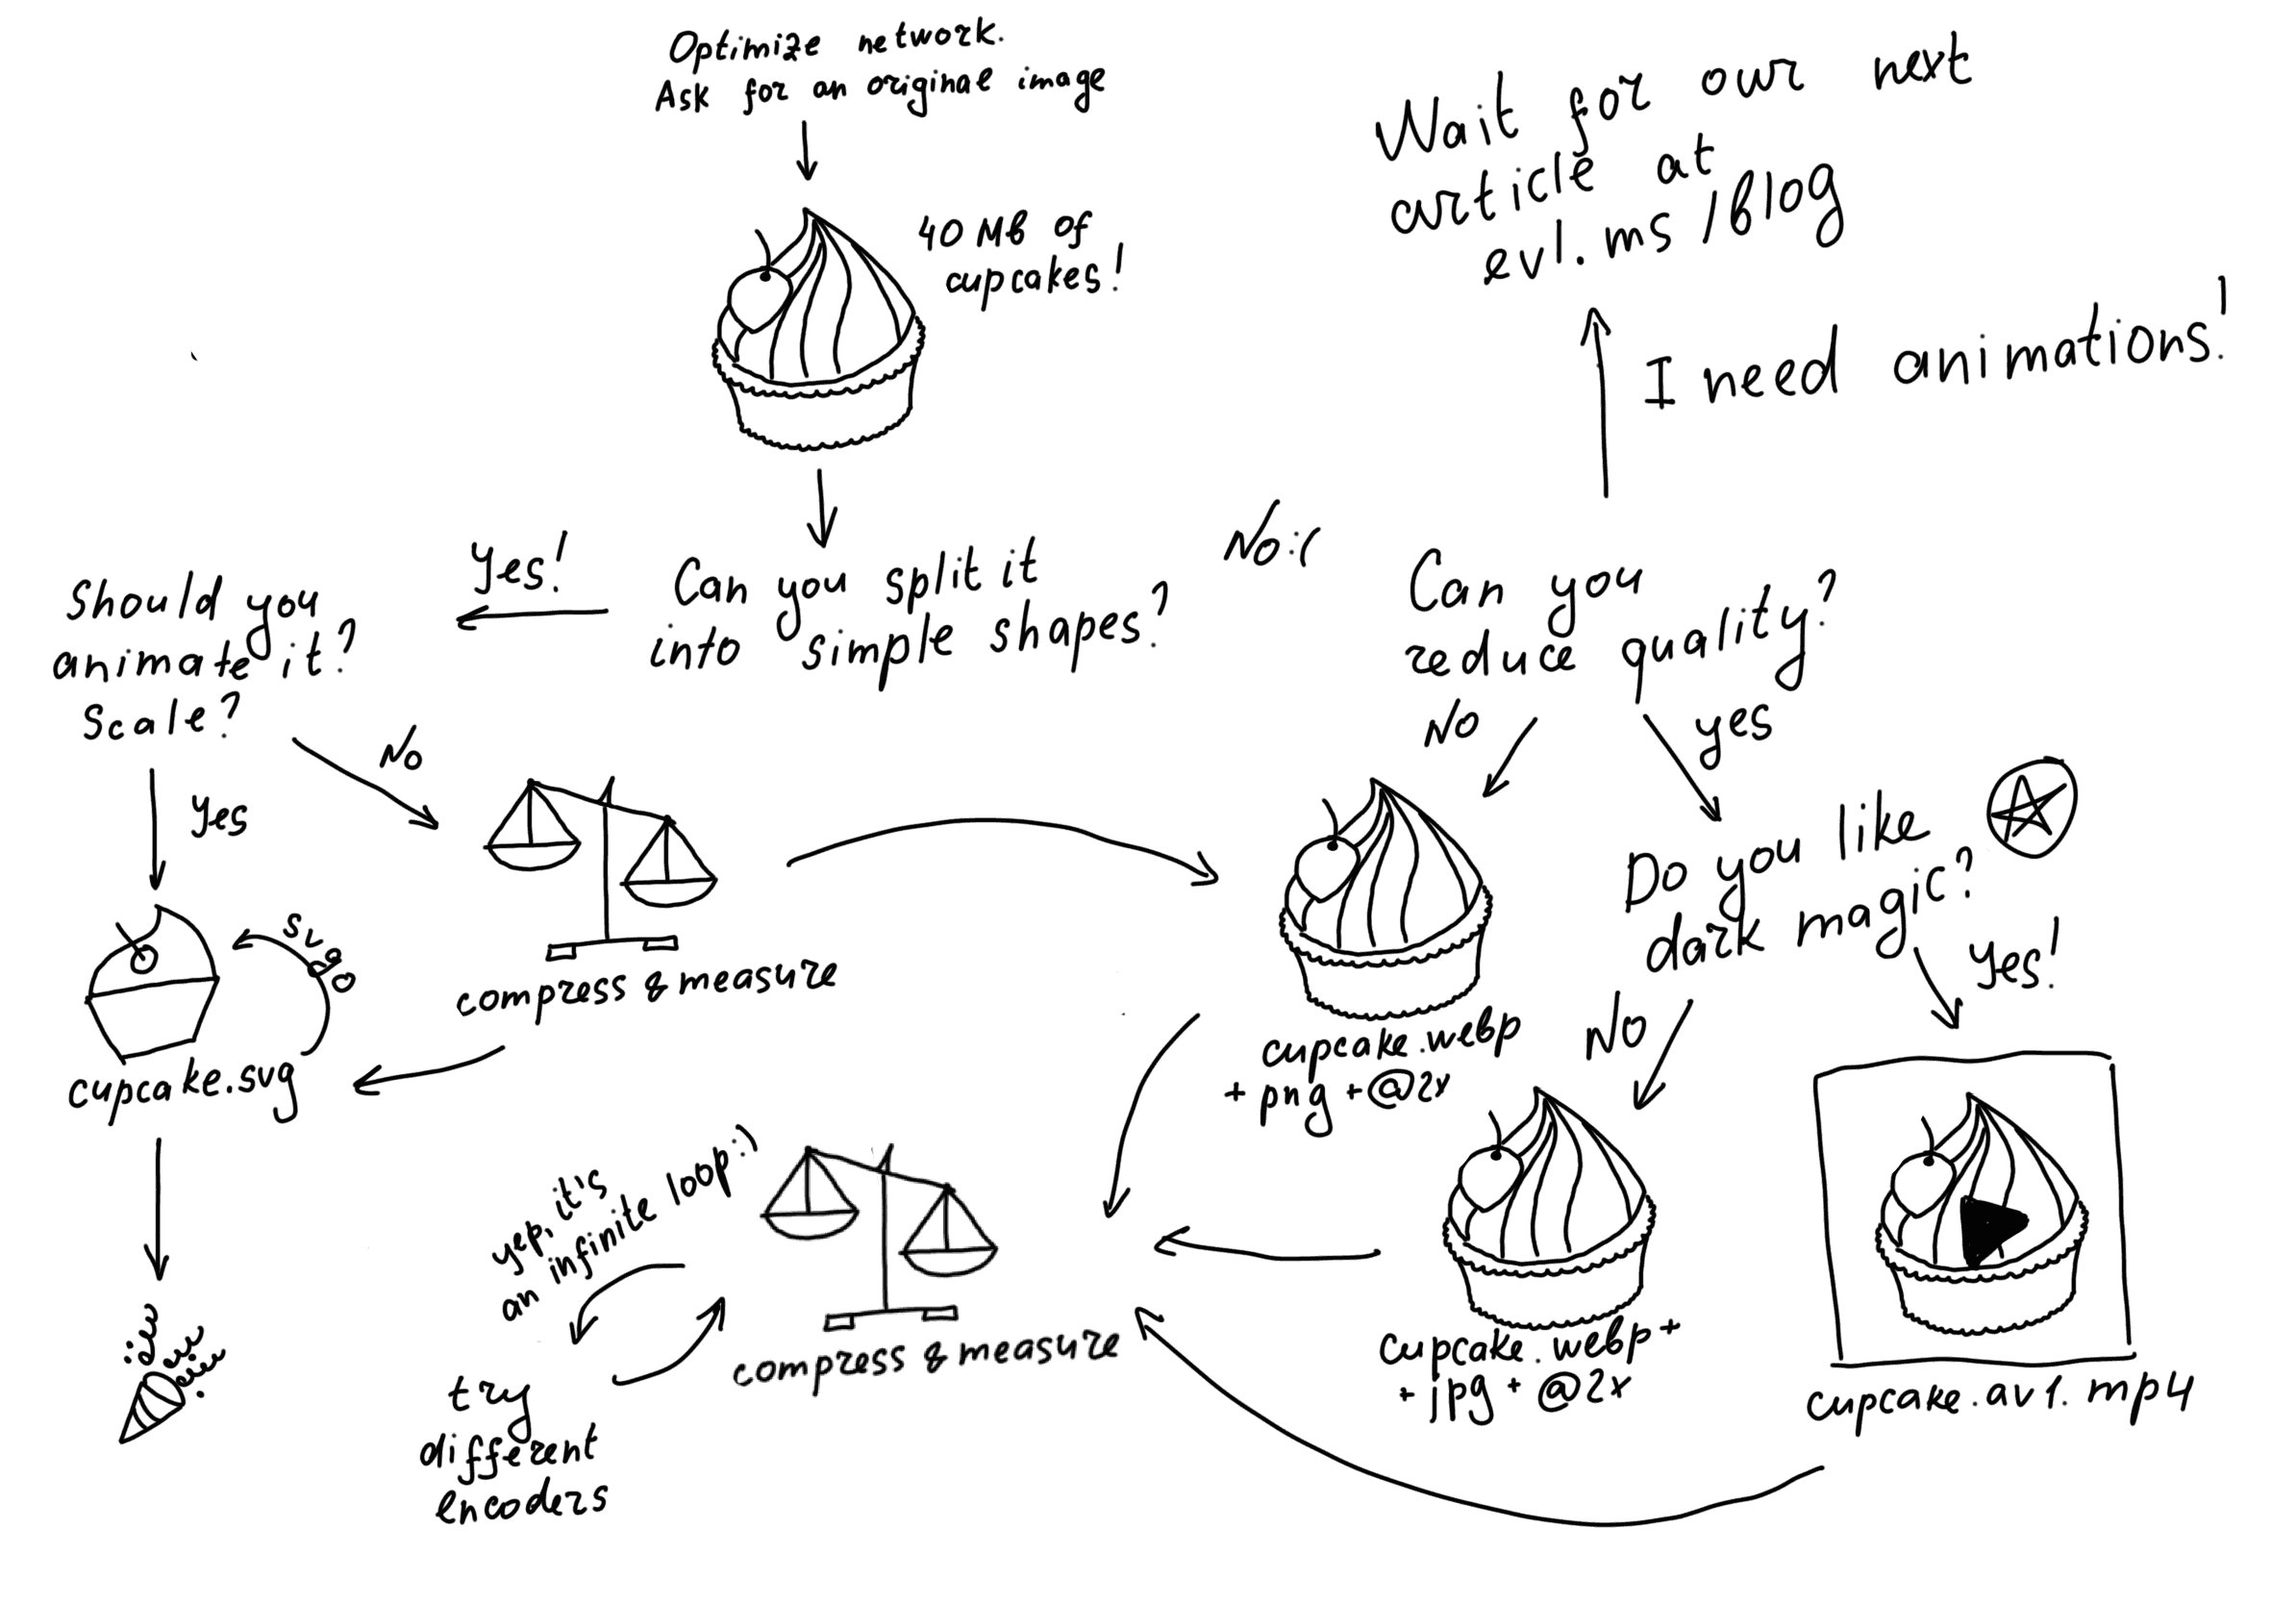 Optimize network.
Ask for an original image
40 Mb of
cupcakes!
Wait for our next
article at
evl.ms/blog
I need animations!
Can you split it
into simple shapes?
Yes!
No:(
Should you
animate it?
Scale?
No
Yes
SVGO
cupcake.svg
compress & measure
Can you
reduce quality?
No
yes
cupcake.webp
+ png + @2x
Do you like
dark magic?
Yes!
No
cupcake.webp +
+ jpg + @2x
cupcake.av1.mp4
compress & measure
yep, it's
an infinite loop:)
try
different
encoders